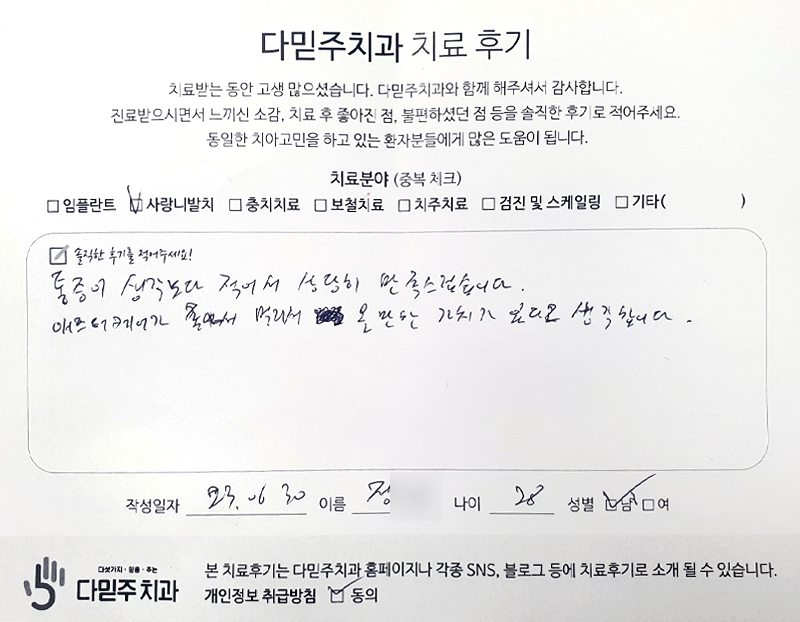 다믿주치과 치료 후기
치료받는 동안 고생 많으셨습니다. 다믿주치과와 함께 해주셔서 감사합니다.
진료받으시면서 느끼신 소감, 치료 후 좋아진 점, 불편하셨던 점 등을 솔직한 후기로 적어주세요.
동일한 치아고민을 하고 있는 환자분들에게 많은 도움이 됩니다.
치료분야 (중복 체크)
☐ 임플란트 ☑ 사랑니발치 ☐ 충치치료 ☐ 보철치료 ☐ 치주치료 ☐ 검진 및 스케일링 ☐ 기타( )
솔직한 후기를 적어주세요!
통증이 생각보다 적어서 상당히 만족스럽습니다.
애프터케어가 좋아서 멀리서 올만한 가치가 있다고 생각합니다.
작성일자 23. 06 30 이름 정 나이 28 성별 ☑ 남 ☐ 여
다섯가지·믿음·주는
다믿주치과
본 치료후기는 다믿주치과 홈페이지나 각종 SNS, 블로그 등에 치료후기로 소개 될 수 있습니다.
개인정보 취급방침 ☑ 동의